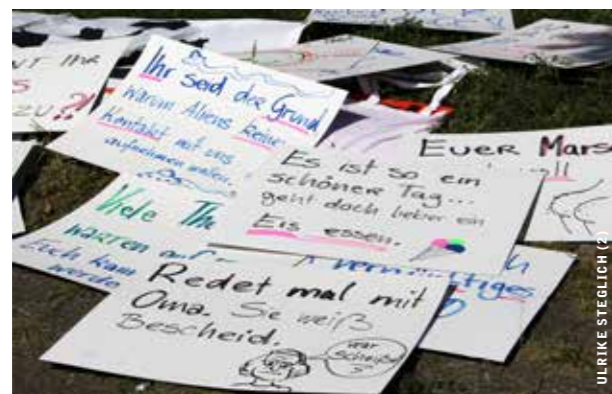 NT IHR
ZU?!
Ihr seid der Grund
warum Aliens keinen
Kontakt mit uns
aufnehmen wollen.
Es ist so ein
schöner Tag...
geht doch lieber ein
Eis essen.
EUER Mars
Viele The
warten auf
Euch kann
werde
vernünftiges
Redet mal mit
Oma. Se weiß
Bescheid.
war
Scheiße
ULRIKE STEGLICH (2)